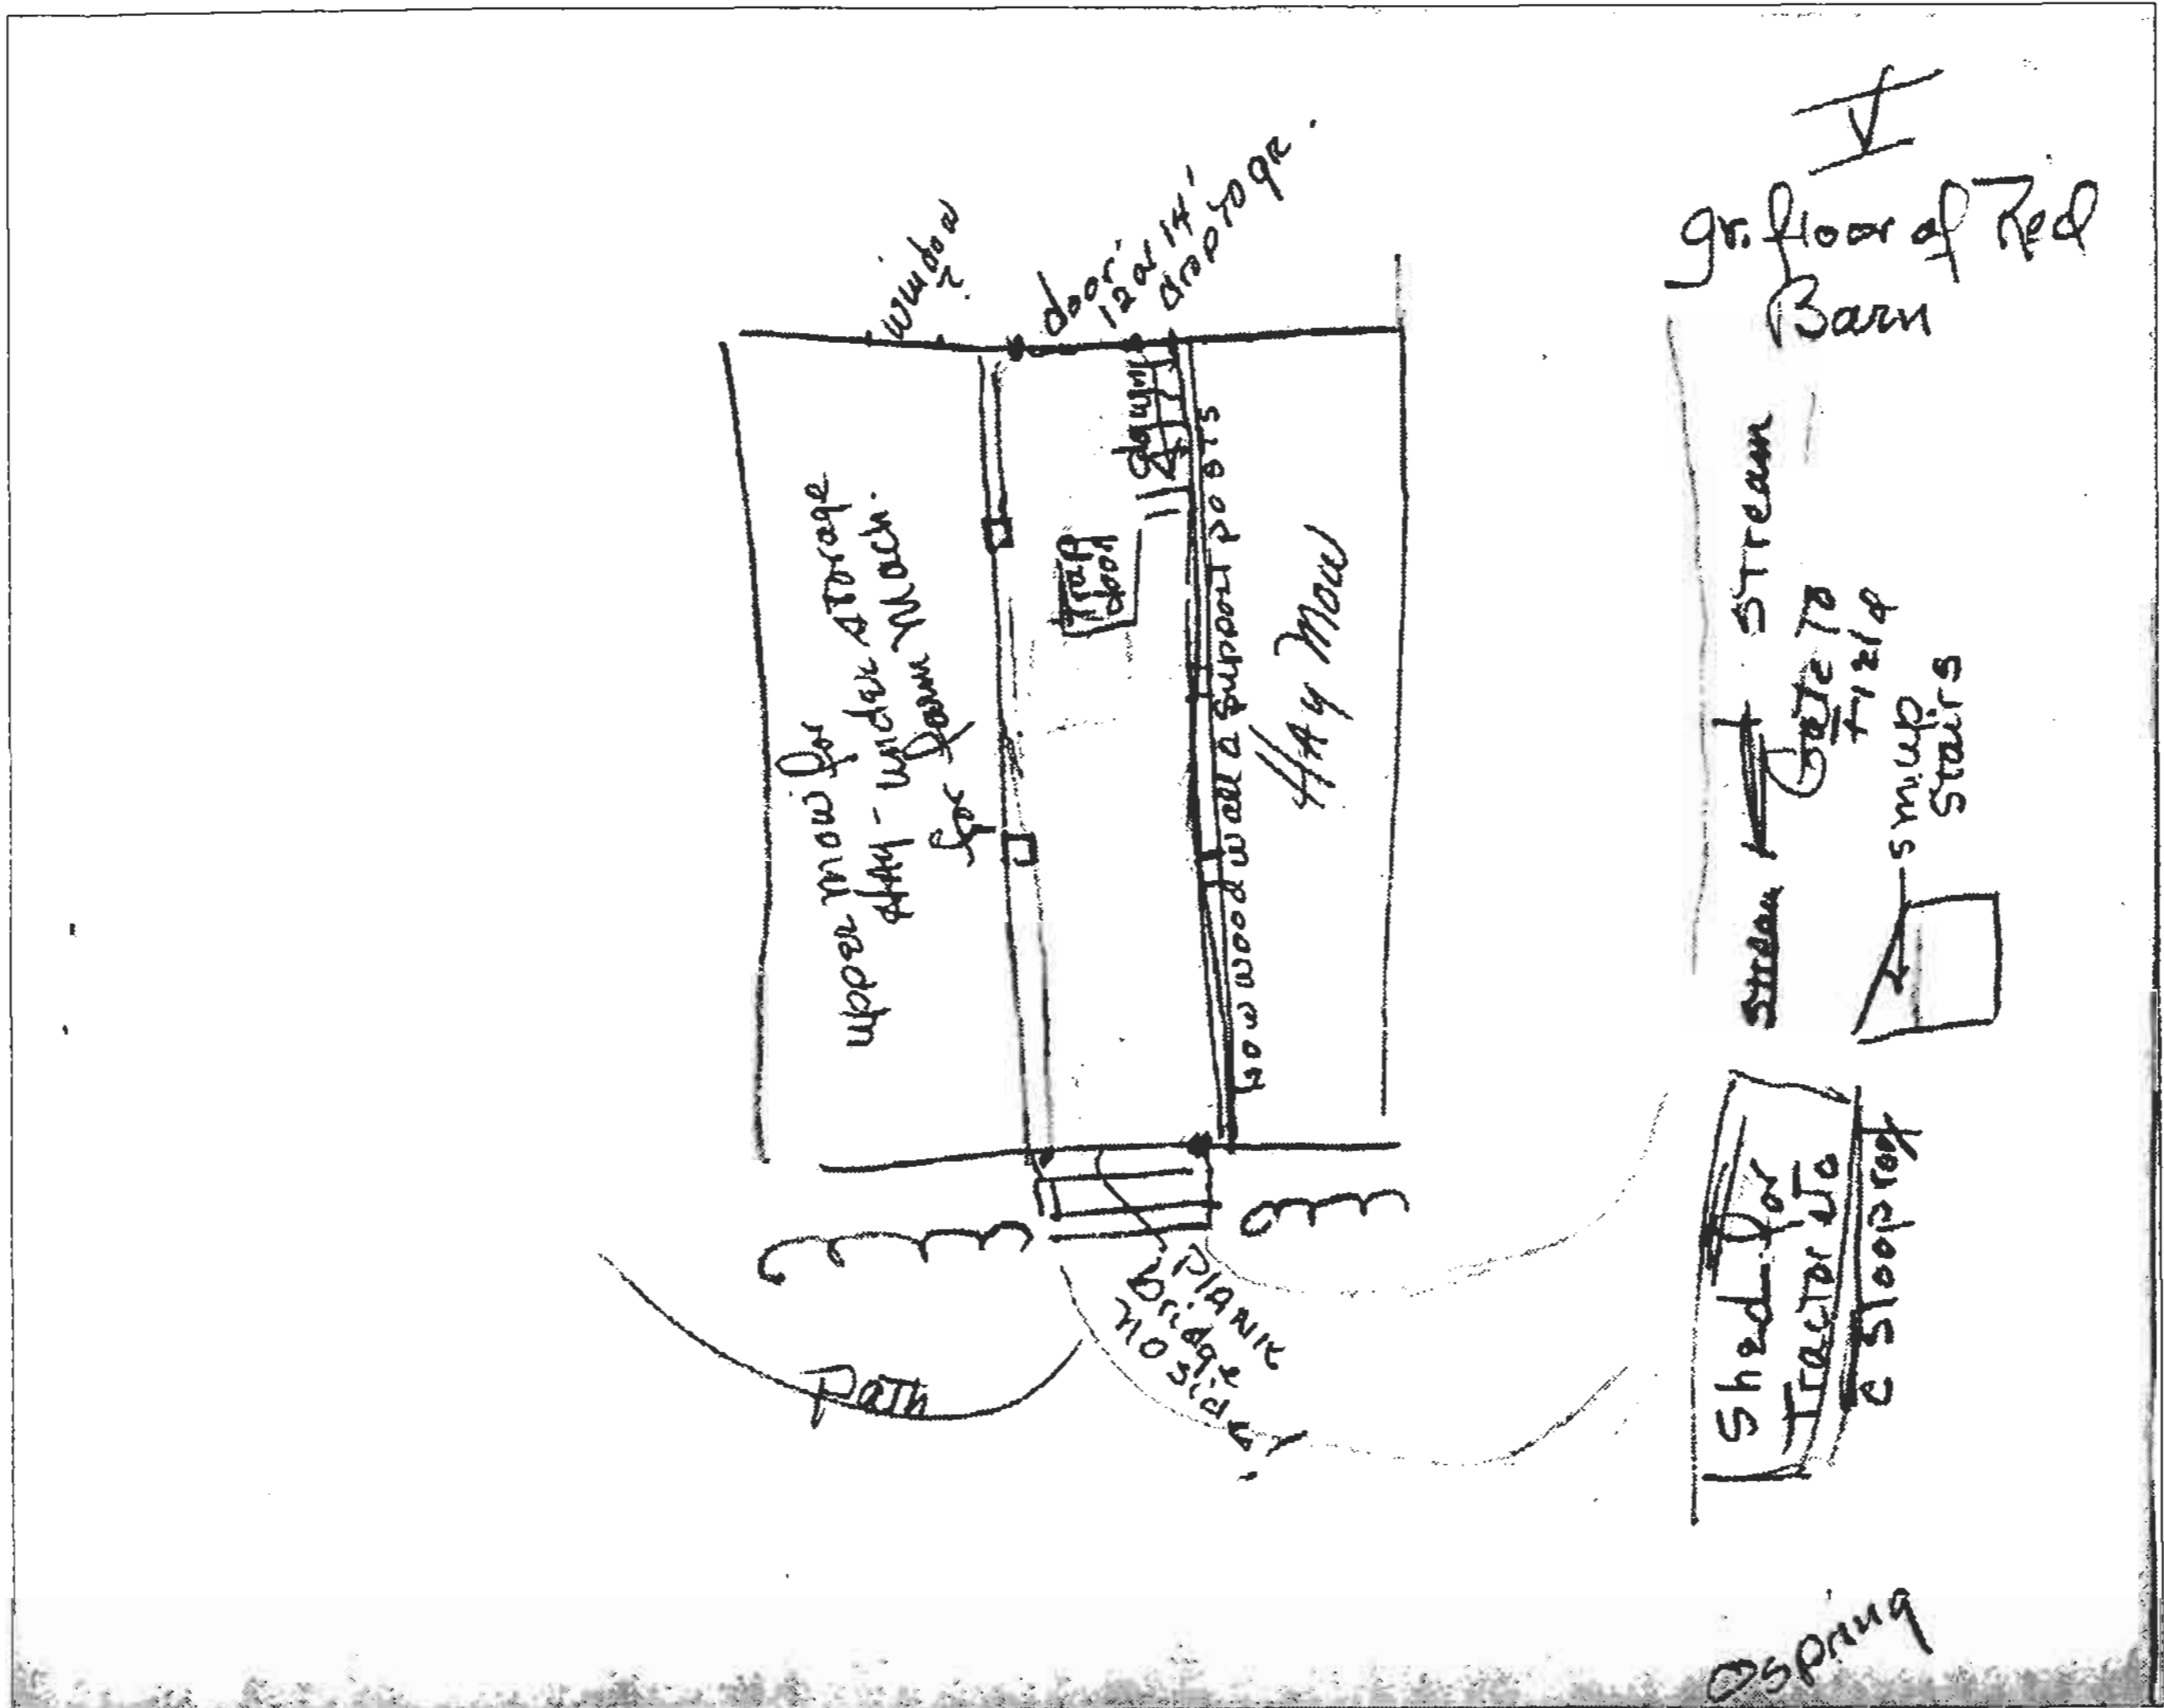 V
gr. floor of Red
Barn
window
door
12 or 14'
drop to gr.
down
Trap
door
upper mow for
HAY - under storage
for farm Mach.
low wood wall c support posts
HAy Mow
Stream
Gate To
Field
Stairs
Shed for
Tractor
c Sloop roof
PLANK
bridge
no sides!
Path
spring